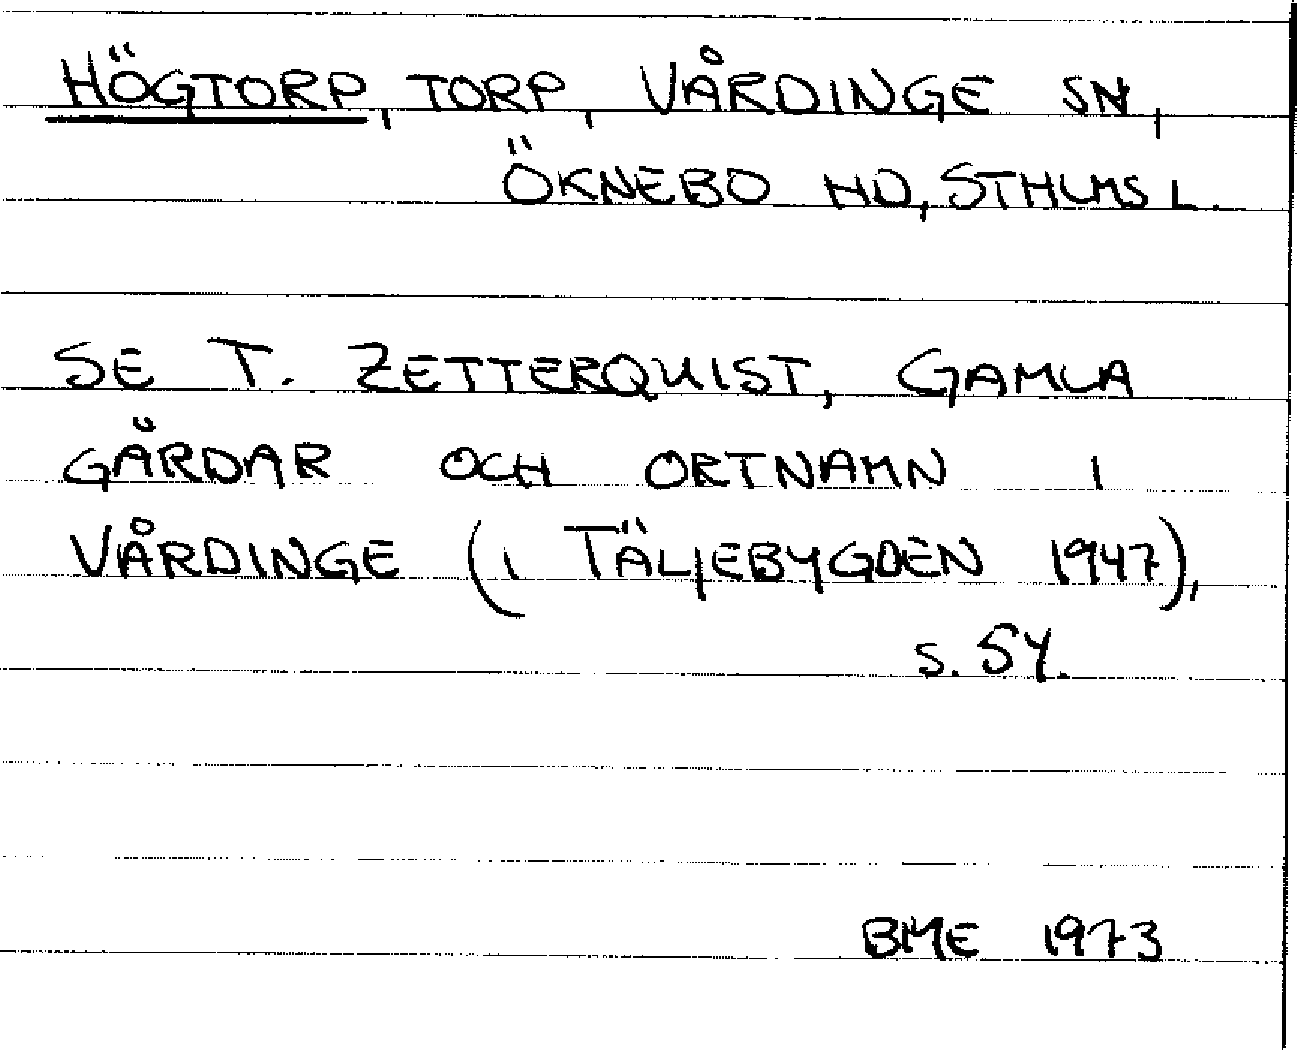 HÖGTORP, TORP, VÅRDINGE SN,
ÖKNEBO HD, STHLMS L.
SE T. ZETTERQUIST, GAMLA
GÅRDAR OCH ORTNAMN I
VÅRDINGE (I TÄLJEBYGDEN 1947),
S. 54.
BME 1973